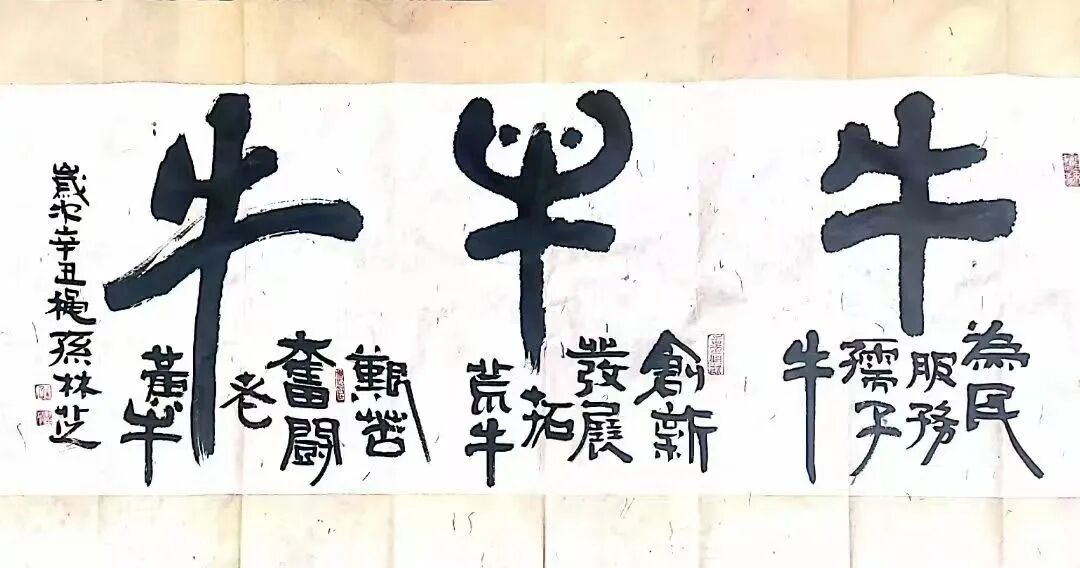 牛
為民
服務
孺子
牛
牛
創新
發展
拓
荒牛
牛
艱苦
奮闘
老
黃牛
歲次辛丑孫林